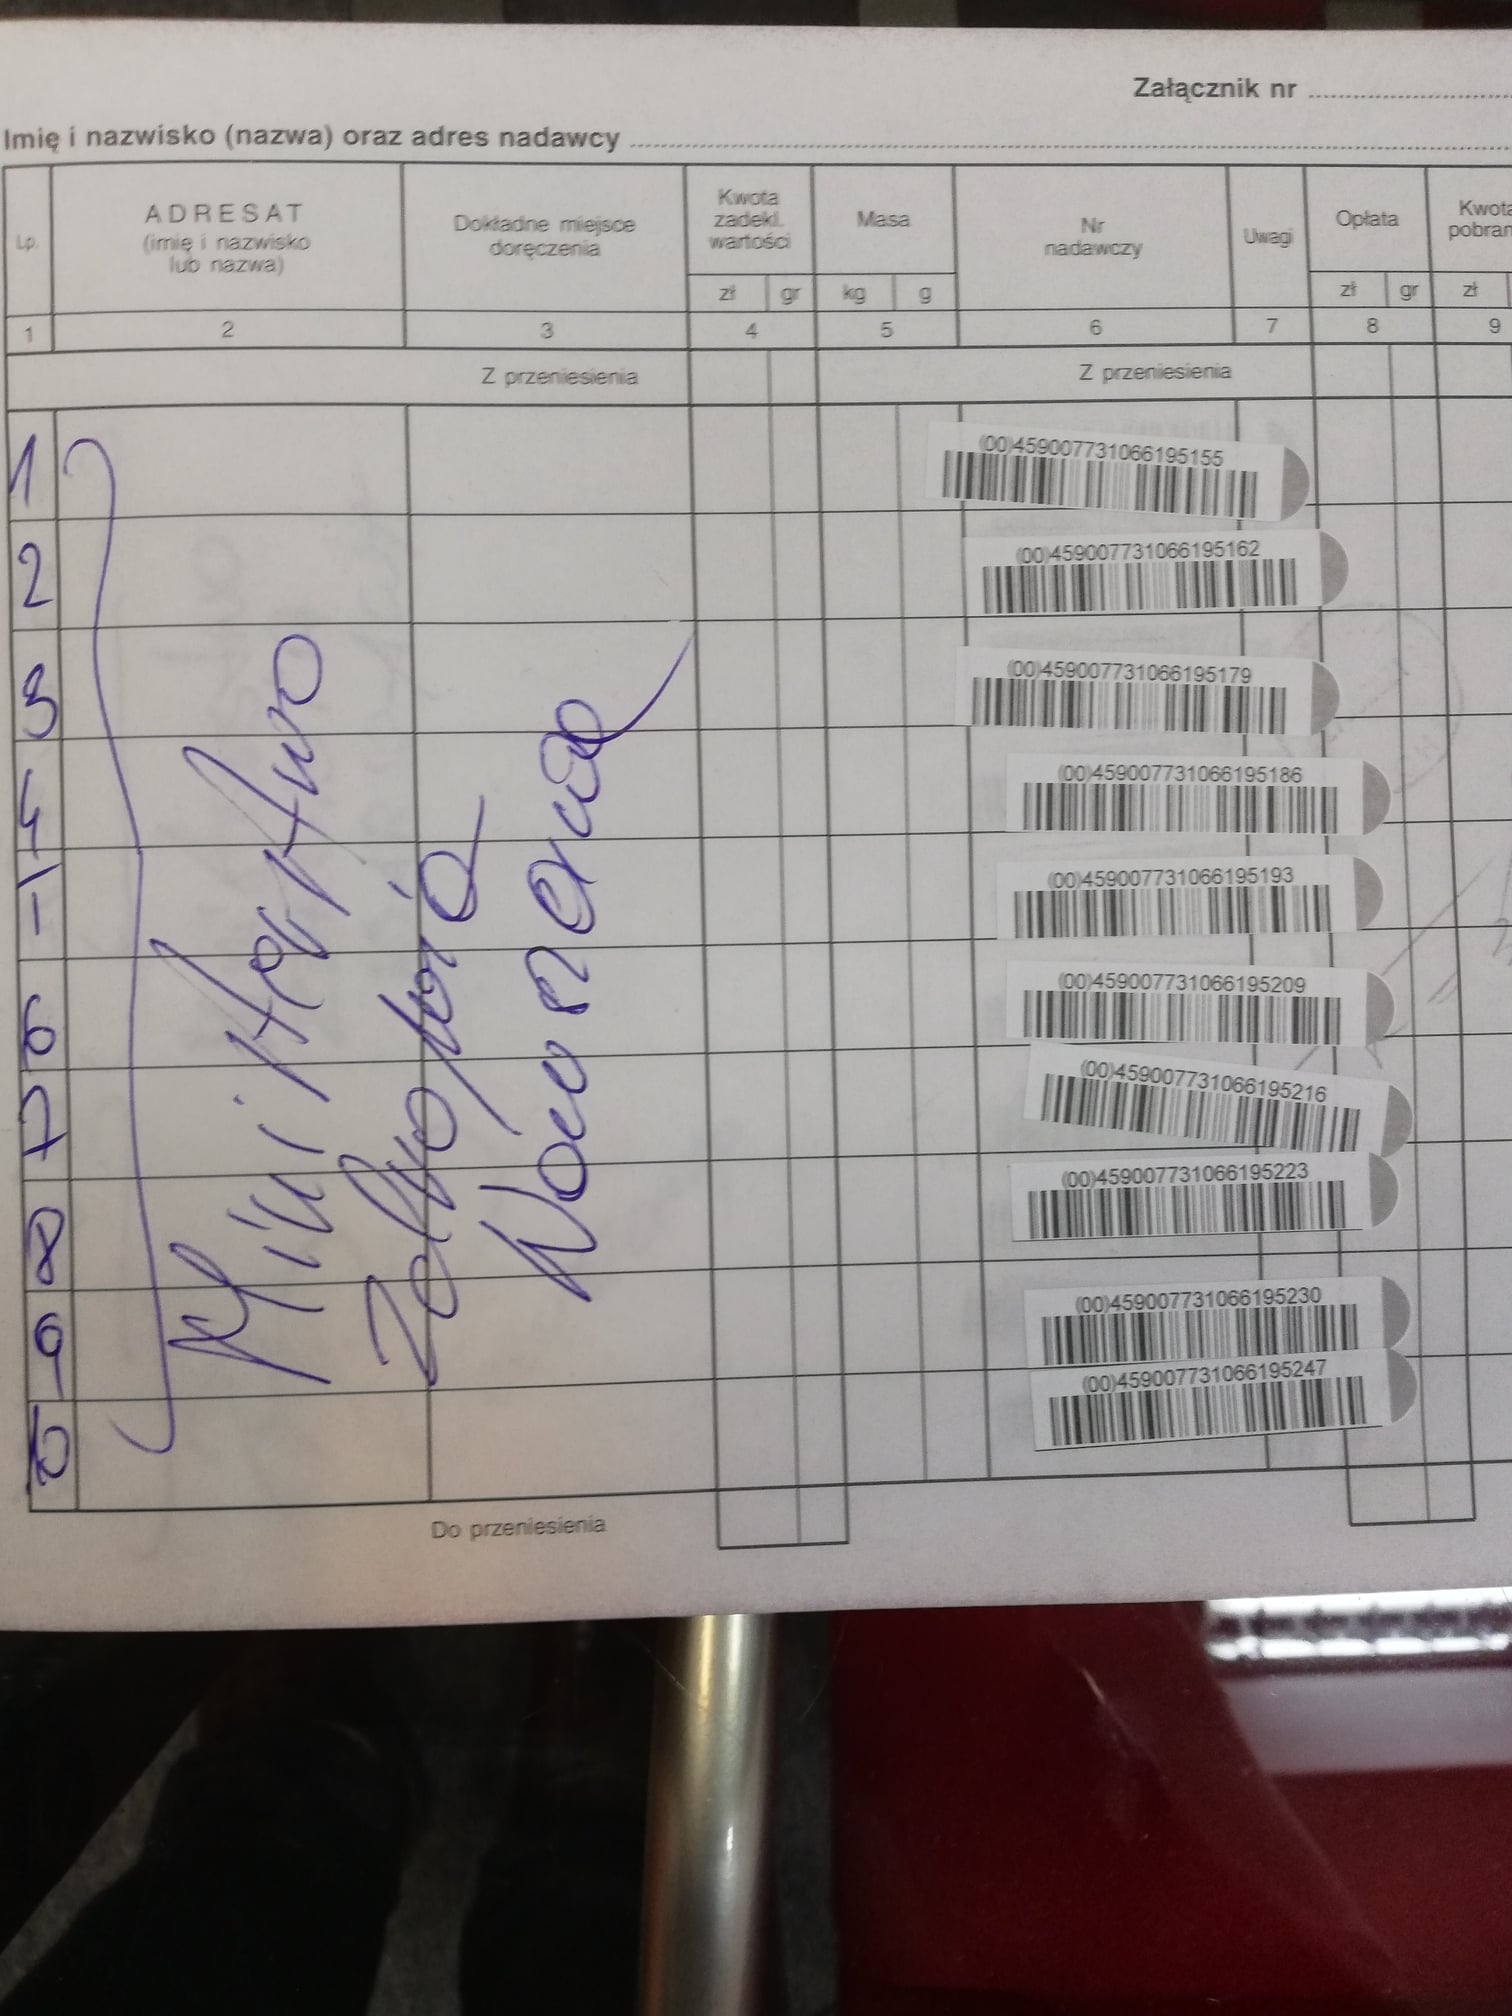 Załącznik nr
Imię i nazwisko (nazwa) oraz adres nadawcy
Lp.
ADRESAT
(imię i nazwisko
lub nazwa)
Dokładne miejsce
doręczenia
Kwota
zadekl.
wartości
zł gr
Masa
kg g
Nr
nadawczy
Uwagi
Opłata
zł gr
Kwota
zł
1 2 3 4 5 6 7 8 9
Z przeniesienia Z przeniesienia
1 (00)459007731066195155
2 (00)459007731066195162
3 (00)459007731066195179
4 (00)459007731066195186
(00)459007731066195193
6 (00)459007731066195209
7 (00)459007731066195216
8 (00)459007731066195223
9 (00)459007731066195230
10 (00)459007731066195247
Do przeniesienia